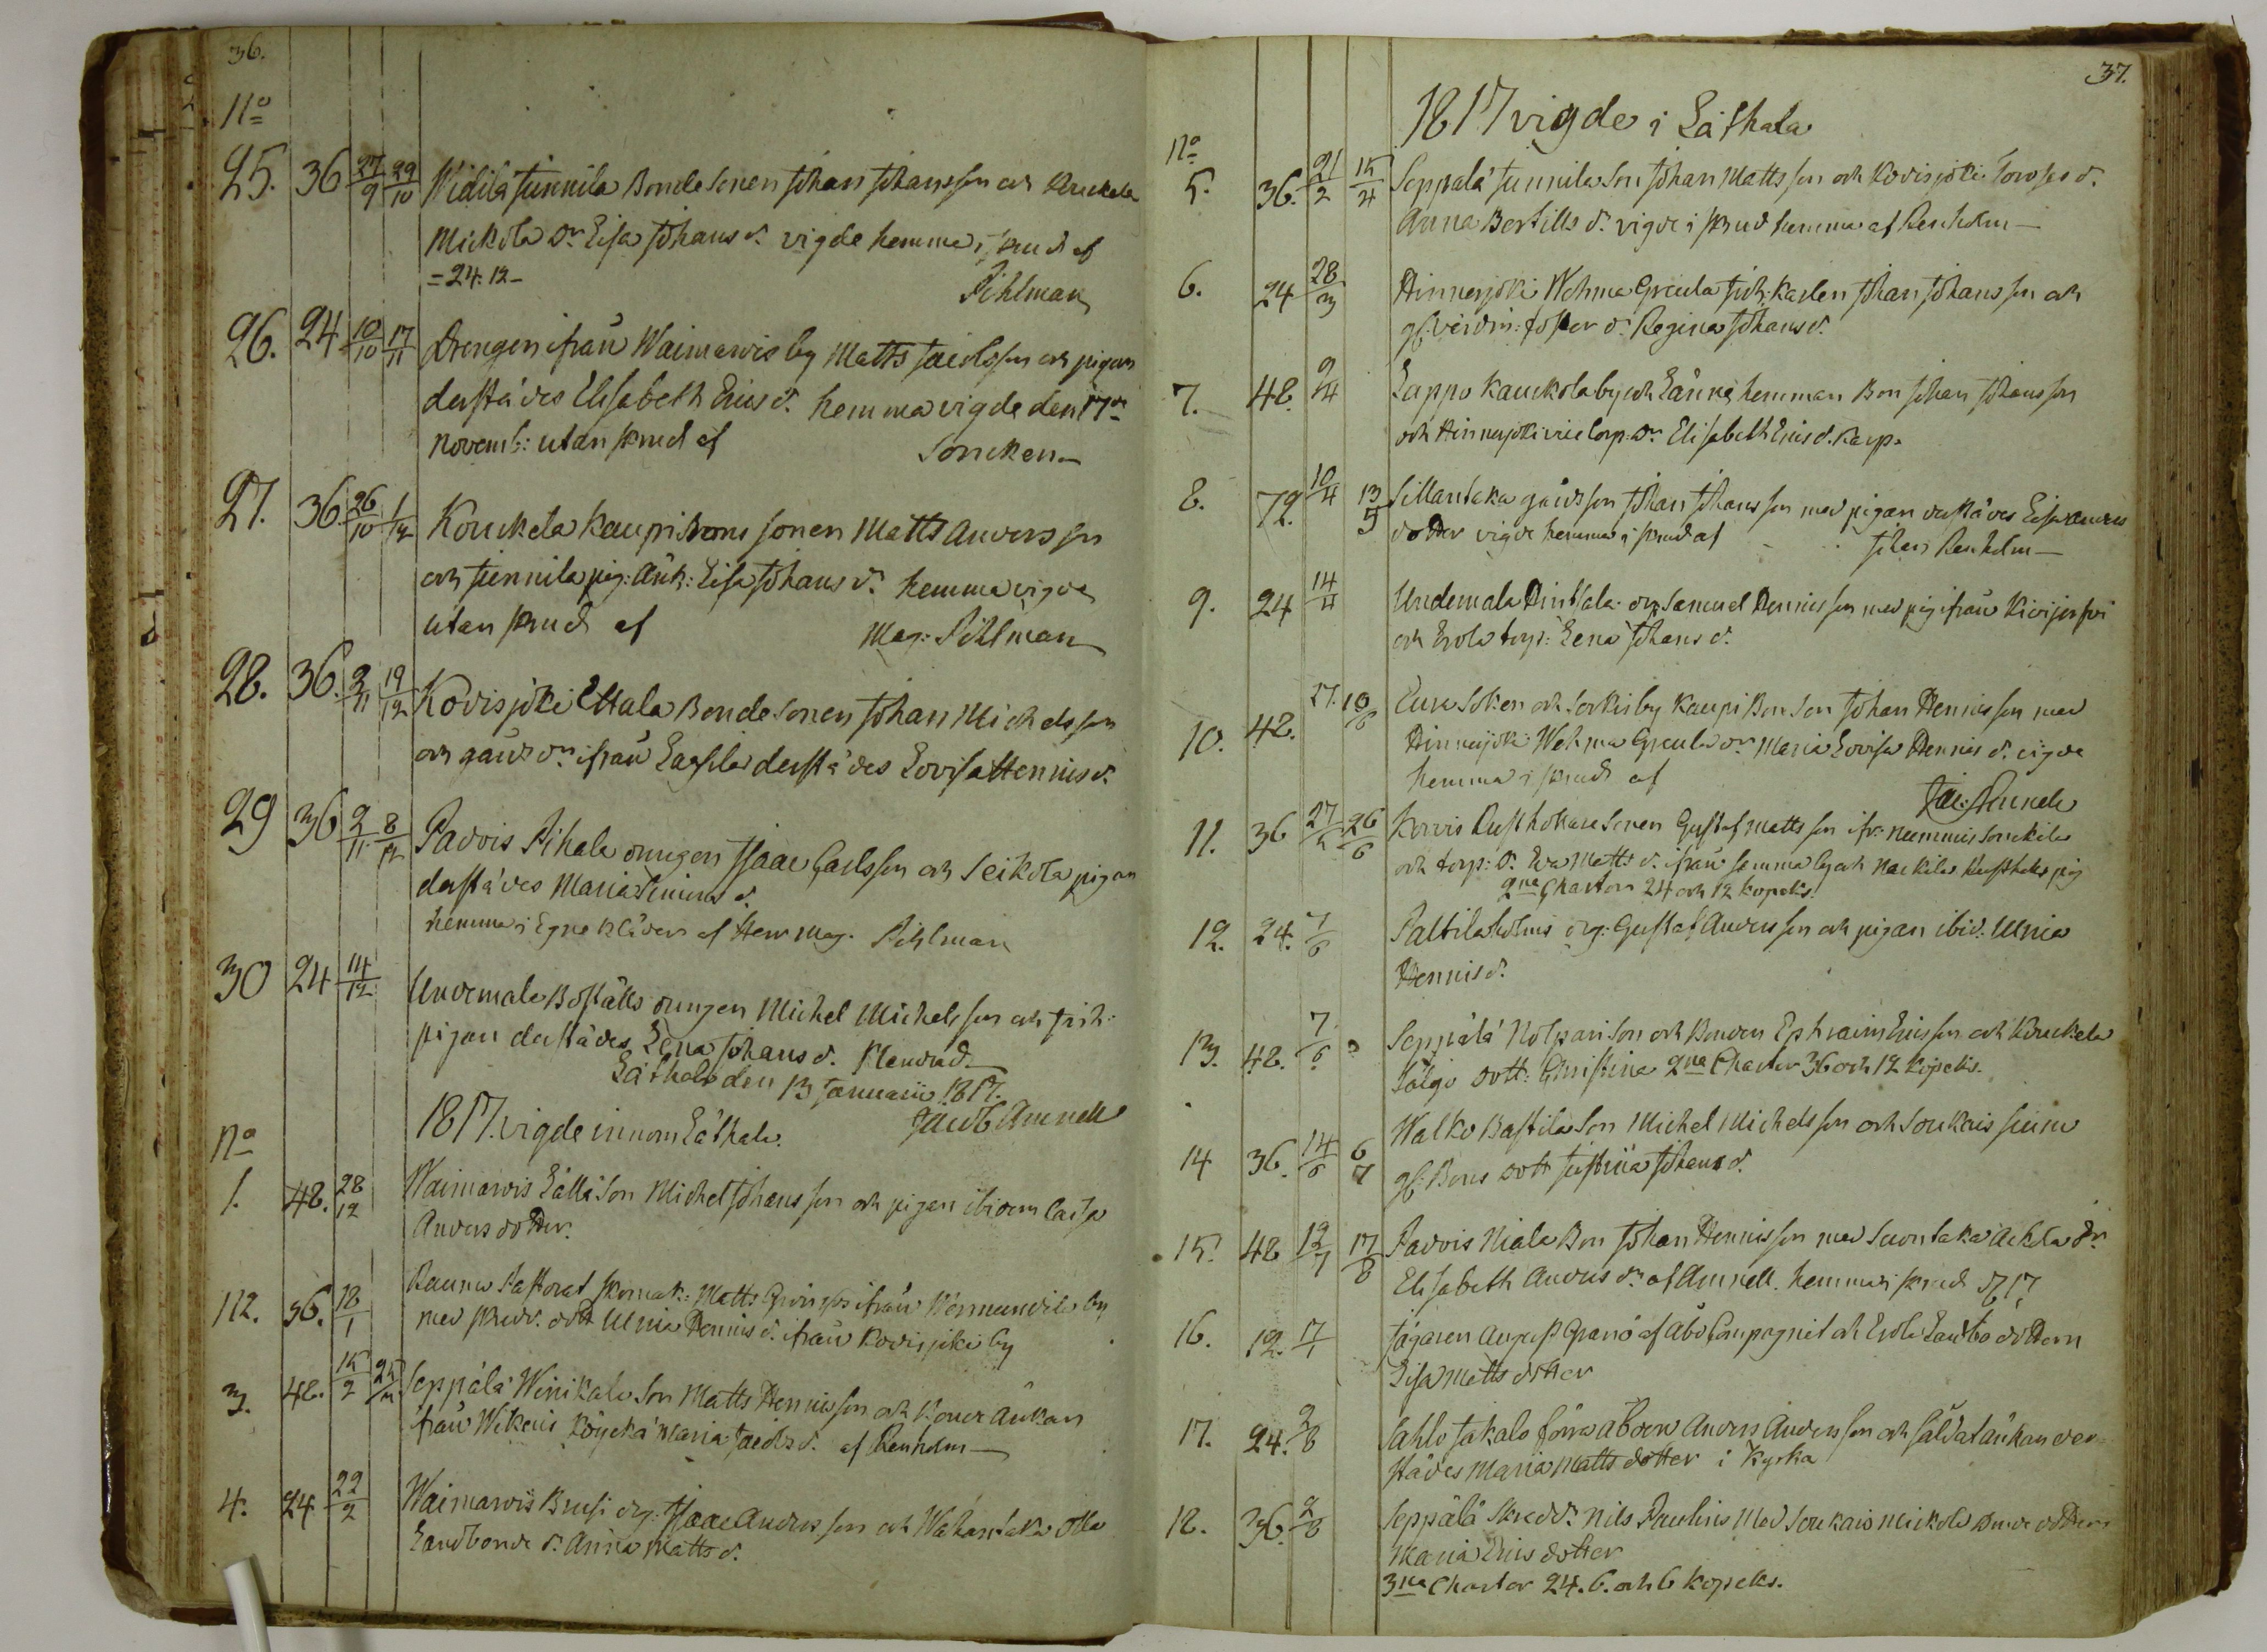 36.
No
25. 36 27/9 29/10 Widilä Junnila Bonde Sonen Johan Johansson och Kauckela
Mickola Dr. Lisa Johans d. vigde hemma i skrud af
=24. 12- Pihlman
26. 24 10/10 17/11 Drengen ifrån Waimaris by Matts Jacobsson och pigan
derstädes Elisabeth Erics d. hemma vigde den 17de
Novemb: utan skrud af Soncken
27. 36 26/10 1/12 Kouckela Kaupi Bonde sonen Matts Andersson
och Junnila pig: Änk: Lisa Johans d. hemma vigde
utan skrud af Mag: Pihlman
28. 36. 2/11 19/12 Kovisjoki Ettala Bonde Sonen Johan Michelsson
och gårds dr. ifrån Laasila derstädes Lovisa Hennis d.
29 36 2/11 8/12 Padvois Pihala drengen Isaac Carlsson och Seikola pigan
derstädes Maria Simons d.
hemma i Egne Kläder af Herr Mag. Pihlman
30 24 14/12 Undemala Boställs drengen Michel Michelsson och Inh:
pigan derstädes Lena Johans d. Klandrad.
Låthala den 13 Januarii 1817.
Jacob Amnell
No 1817. vigde innom Låthala.
1. 48. 28/12 Waimaris Lälla Son Michel Johansson och pigan ibidem Caisa
Anders dotter.
112. 36. 18/1 Raumo Pastorat skomak: Matts Grönroos ifrån Wermundila by
med skrädd. dott Ulrica Hennis d. ifrån Kovisjoki by
3. 48. 15/2 Seppälä Winikala Son Matts Hennisson och Bonde Änkan
från Wekeris Köyckä Maria Jacobs d. af Renholm
4. 24. 22/2 Waimaris Brusi drg: Isaac Andersson och Wahantaka Olla
Landbonde d. Anna Matts d.
37.
1817 vigde i Låthala
No
5. 36. 21/2 15/4 Seppälä Junnila Son Johan Mattsson och Kovisjoki
Anna Bertills d. vigde i skrud hemma af Renholm
6. 24 28/3 Hinnerjoki Wehma Greula Johan Johansson och
foster d. Regina Johans d.
7. 48. 9/4 Lappo Kauckola by och Länne hemman Bon Johan Johansson
och Hinnerjoki vice Corp: Dr. Elisabeth Erics d. Karp.
8. 72. 10/4 13/5 Sillantaka gårds son Johan Johansson med pigan derstädes Lisa Anders
dotter vigde hemma i skrud af Johan Renholm
9. 24 14/4 Undemala Hintsala drg Samuel Hennisson med pig ifrån Kivijerfvi
och Erola torp: Lena Johans d.
10. 48. 27. 10/6 Eura Soken och Sorkis by Kaupi Bon Son Johan Hennisson med
Hinnerjoki Wehma Greula dr. Maria Lovisa Hennis d. vigde
hemma i skrud af
Jac: Amnell
11. 36 27/4 26/6 Korvis Rusthollare Sonen Gustaf Mattsson ifr: Nummis Sonckila
och torp: d. Eva Matts d. ifrån samma by och Nackila Rusthåls pig
2ne Chartor 24 och 12 kopeks.
12. 24. 7/6 Paltila drg: Gustaf Andersson och pigan ibid: Ulrica
Hennis d.
13. 48. 7/6 Seppälä Kolpari Son och Bonden Ephraim Ericsson och Kouckela
Jälgo dott: Christina 2ne Chartor 36 och 12 kopeks.
14 36. 14/6 6/7 Walko Bastila Son Michel Michelsson och Soukais
gl: Bons dott Justina Johans d.
15. 48 12/7 17/8 Padvois Niala Bon Johan Hennisson med Suontaka Achola dr.
Elisabeth Anders dr. af Amnell. hemma i skrud
16. 12. 17/1 Jägaren August Granö af Åbo Compagnie och Erola Lambo dottern
Lisa Matts dotter
17. 24. 2/8 Sahlo Jakala förra åboen Anders Andersson och Soldat änkan der-
städes Maria Matts dotter i Kyrka
18. 36. 2/8 Seppälä Skrädd: Nils Paulinis med Soukais Mickola Bonde dotter
Maria Erics dotter
3ne Chartor 24. 6. och 6 kopeks.